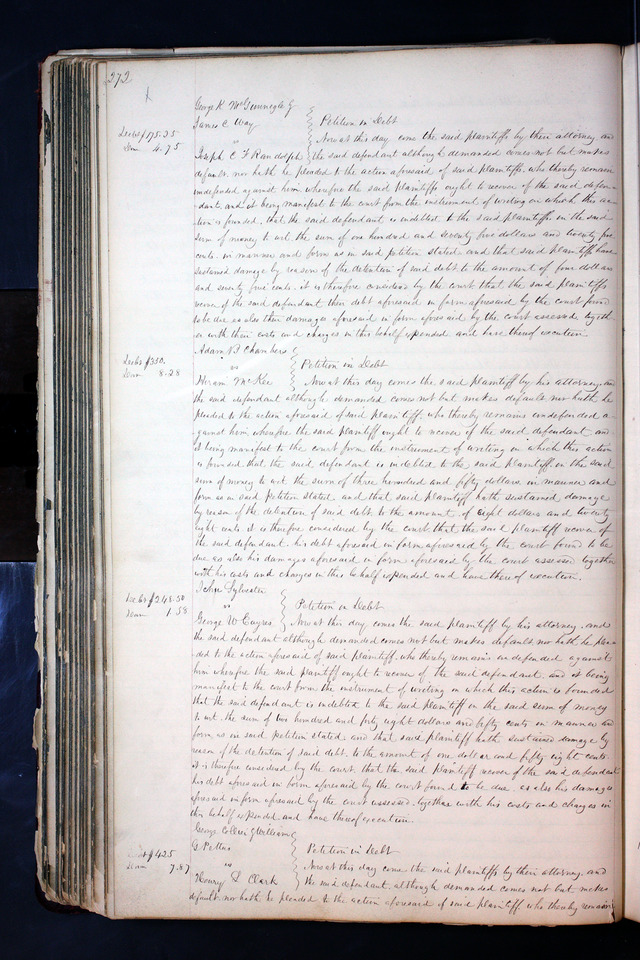 272
George K McGunnegle &
James C Way } Petition in Debt
vs Now at this day come the said plaintiffs by their attorney and
Debt $175.25
Dam 4.75
Joseph C F Randolph the said defendant although demanded comes not but makes
default, nor hath he pleaded to the action aforesaid of said plaintiffs, who thereby remain
undefended against him wherefore the said plaintiffs ought to recover of the said defen
dant, and it being manifest to the court from the instrument of writing on which this ac
tion is founded, that the said defendant is indebted to the said plaintiffs in the said
sum of money to wit the sum of one hundred and seventy five dollars and twenty five
cents, in manner and form as in said petition stated and that said plaintiffs have
sustained damage by reason of the detention of said debt to the amount of four dollars
and seventy five cents. it is therefore considered by the court that the said plaintiffs
recover of the said defendant their debt aforesaid in form aforesaid by the court found
to be due as also their damages aforesaid in form aforesaid by the court assessed togeth
er with their costs and charges in this behalf expended and have thereof execution
Adam F Chambers
Debt $350.
Dam 8.28
vs } Petition in Debt
Hiram McKee Now at this day comes the said plaintiff by his attorney, and
the said defendant although demanded comes not but makes default nor hath he
pleaded to the action aforesaid of said plaintiff, who thereby remains undefended a
gainst him, wherefore the said plaintiff ought to recover of the said defendant and
it being manifest to the court from the instrument of writing on which this action
is founded, that the said defendant is indebted to the said plaintiff in the said
sum of money to wit the sum of three hundred and fifty dollars in manner and
form as in said Petition stated and that said plaintiff hath sustained damage
by reason of the detention of said debt to the amount of eight dollars and twenty
eight cents it is therefore considered by the court that the said plaintiff recover of
the said defendant his debt aforesaid in form aforesaid by the court found to be
due as also his damages aforesaid in form aforesaid by the court assessed together
with his costs and charges in this behalf expended and have thereof execution.
John Sylvester
Debt $248.50
Dam 1.58
vs } Petition in Debt
George W Now at this day comes the said plaintiff by his attorney, and
the said defendant although demanded comes not but makes default nor hath he plea
ded to the action aforesaid of said plaintiff, who thereby remains undefended against
him wherefore the said plaintiff ought to recover of the said defendant. and it being
manifest to the court from the instrument of writing on which this action is founded
that the said defendant is indebted to the said plaintiff in the said sum of money
to wit the sum of two hundred and forty eight dollars and fifty cents in manner and
form as in said petition stated. and that said plaintiff hath sustained damage by
reason of the detention of said debt to the amount of one dollar and fifty eight cents.
it is therefore considered by the court that the said plaintiff recover of the said defendant
his debt aforesaid in form aforesaid by the court found to be due. as also his damages
aforesaid in form aforesaid by the court assessed. together with his costs and charges in
this behalf expended, and have thereof execution.
George Collier & William
G Pettus } Petition in Debt
Debt $425
Dam 7.87
vs Now at this day come the said plaintiffs by their attorney, and
Henry L Clark the said defendant, although demanded comes not but makes
default. nor hath he pleaded to the action aforesaid of said plaintiff, who thereby remains